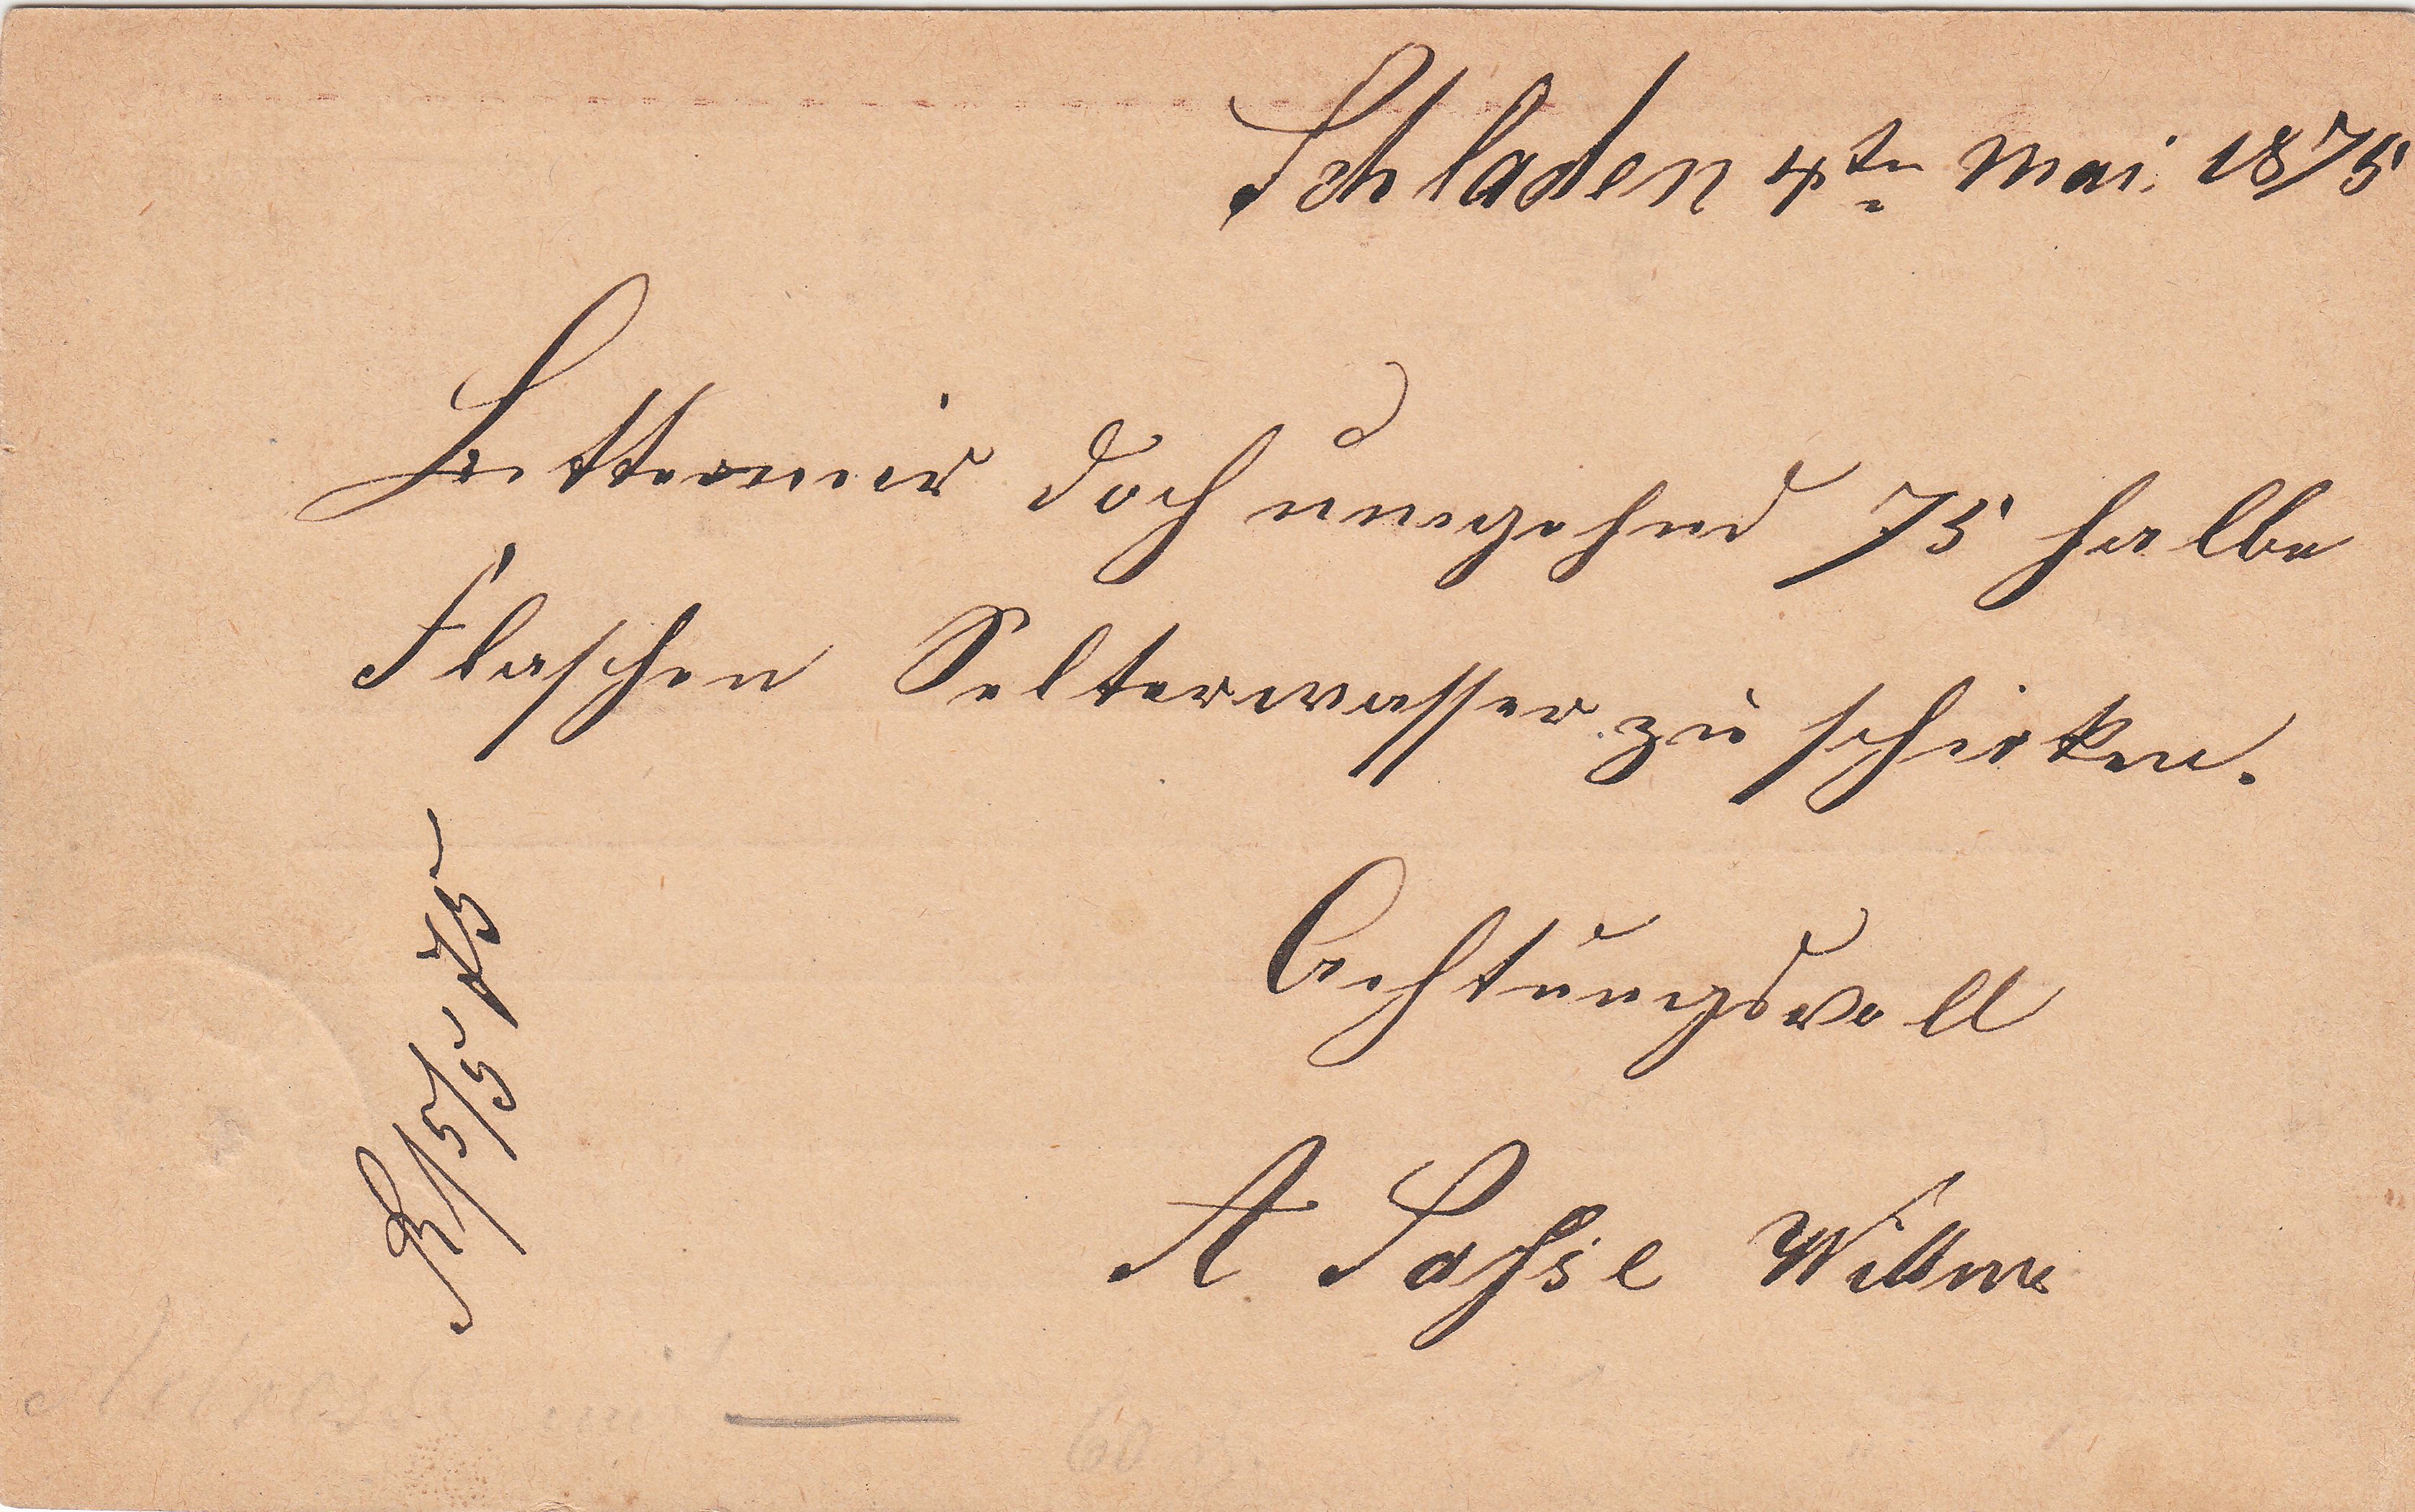 Schladen 4ten Mai. 1875
Bitte mir doch umgehend 75 halbe
Flaschen Selterwasser zu schicken.
Achtungsvoll
A Sasse Wittwe
R/5/5 75